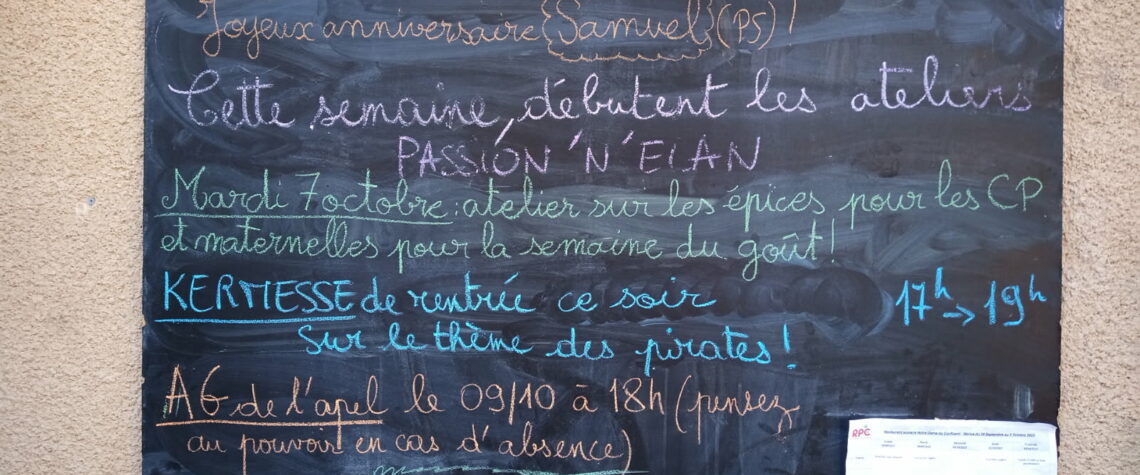 Joyeux anniversaire {Samuel} (PS) !
Cette semaine, débutent les ateliers
PASSION 'N' ELAN
Mardi 7 octobre : atelier sur les épices pour les CP
et maternelles pour la semaine du goût !
KERMESSE de rentrée ce soir 17h → 19h
sur le thème des pirates !
AG de l'apel le 09/10 à 18h (pensez
au pouvoir en cas d'absence)
RPC